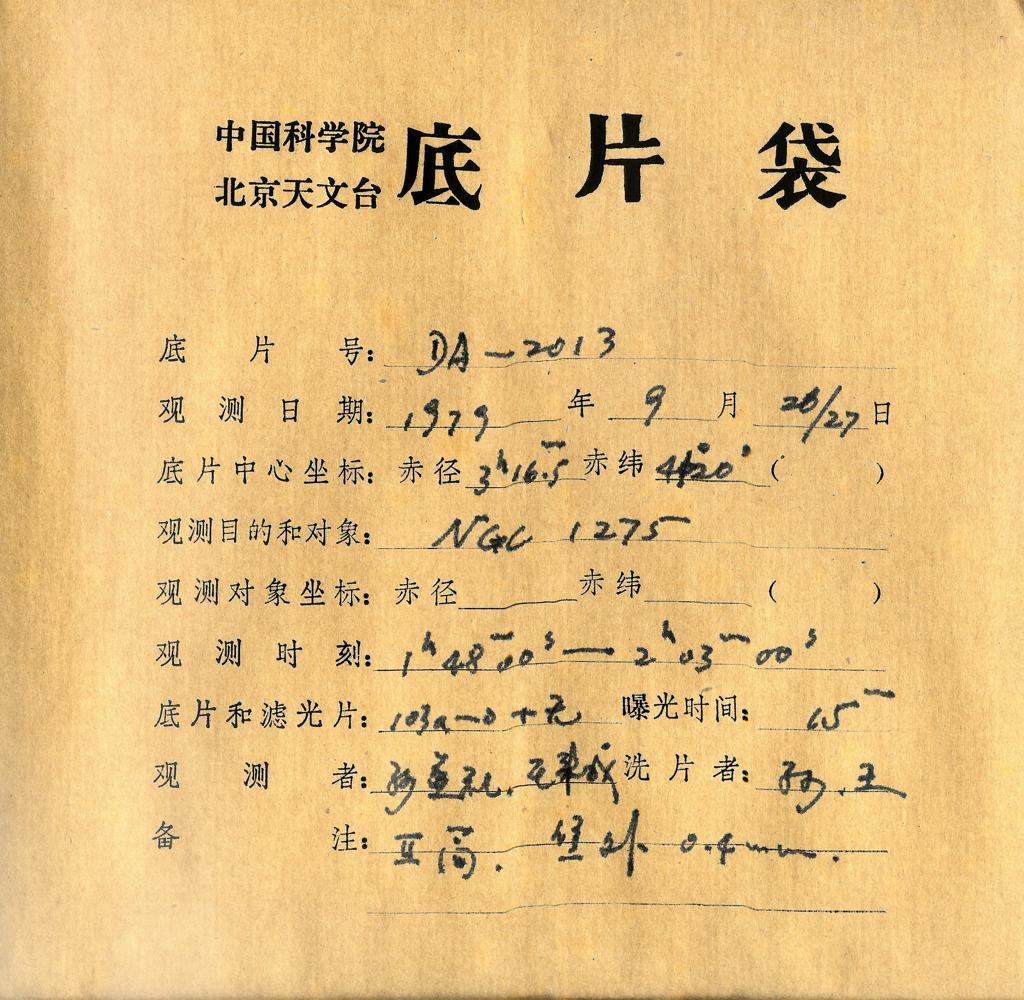 中国科学院
北京天文台
底片袋
底片号: DA-2013
观测日期: 1979年9月26/27日
底片中心坐标: 赤径 3ʰ16ᵐ.5 赤纬 41°20′ ( )
观测目的和对象: NGC 1275
观测对象坐标: 赤径 赤纬 ( )
观测时刻: 1ʰ48ᵐ00ˢ — 2ʰ03ᵐ00ˢ
底片和滤光片: 103a-O + 无 曝光时间: 15ᵐ
观测者: 孙 洗片者: 孙.王
备注: 0.4mm.